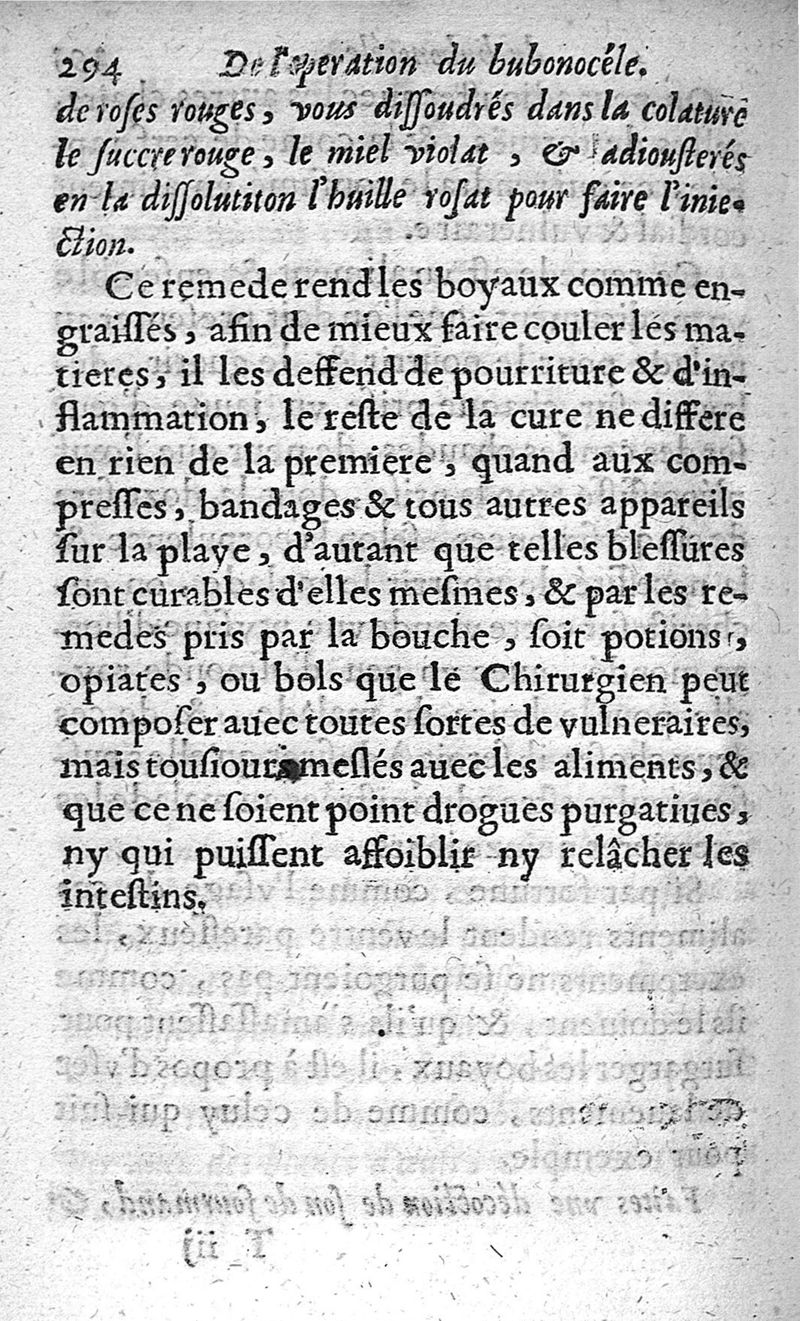 294 De l'operation du bubonocéle.
de roſes rouges, vous diſſoudrés dans la colature
le ſuccre rouge, le miel violat, & adiouſterés
en la diſſolutiton l'huille roſat pour faire l'inie-
ction.
Ce remede rend les boyaux comme en-
graiſſés, afin de mieux faire couler les ma-
tieres, il les deffend de pourriture & d'in-
flammation, le reſte de la cure ne differe
en rien de la premiere, quand aux com-
preſſes, bandages & tous autres appareils
ſur la playe, d'autant que telles bleſſures
ſont curables d'elles meſmes, & par les re-
medes pris par la bouche, ſoit potions,
opiates, ou bols que le Chirurgien peut
compoſer auec toutes ſortes de vulneraires,
mais touſiours meſlés auec les aliments, &
que ce ne ſoient point drogues purgatiues,
ny qui puiſſent affoiblir ny relâcher les
inteſtins.